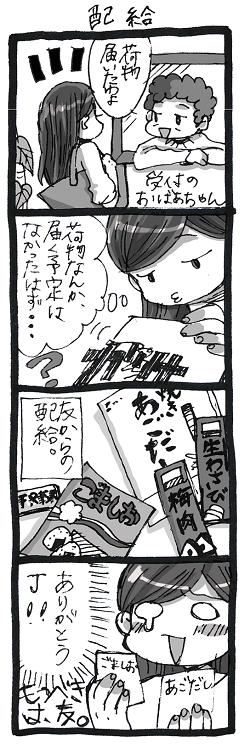 配給
荷物
届いたわよ
受付の
おばあちゃん
荷物なんか、
届く予定は
なかったはず・・・
?
友からの
配給。
あごだし
ごましお
梅肉
生わさび
ありがとう
J!!
もつべき
は、友。
ごましお
あごだし